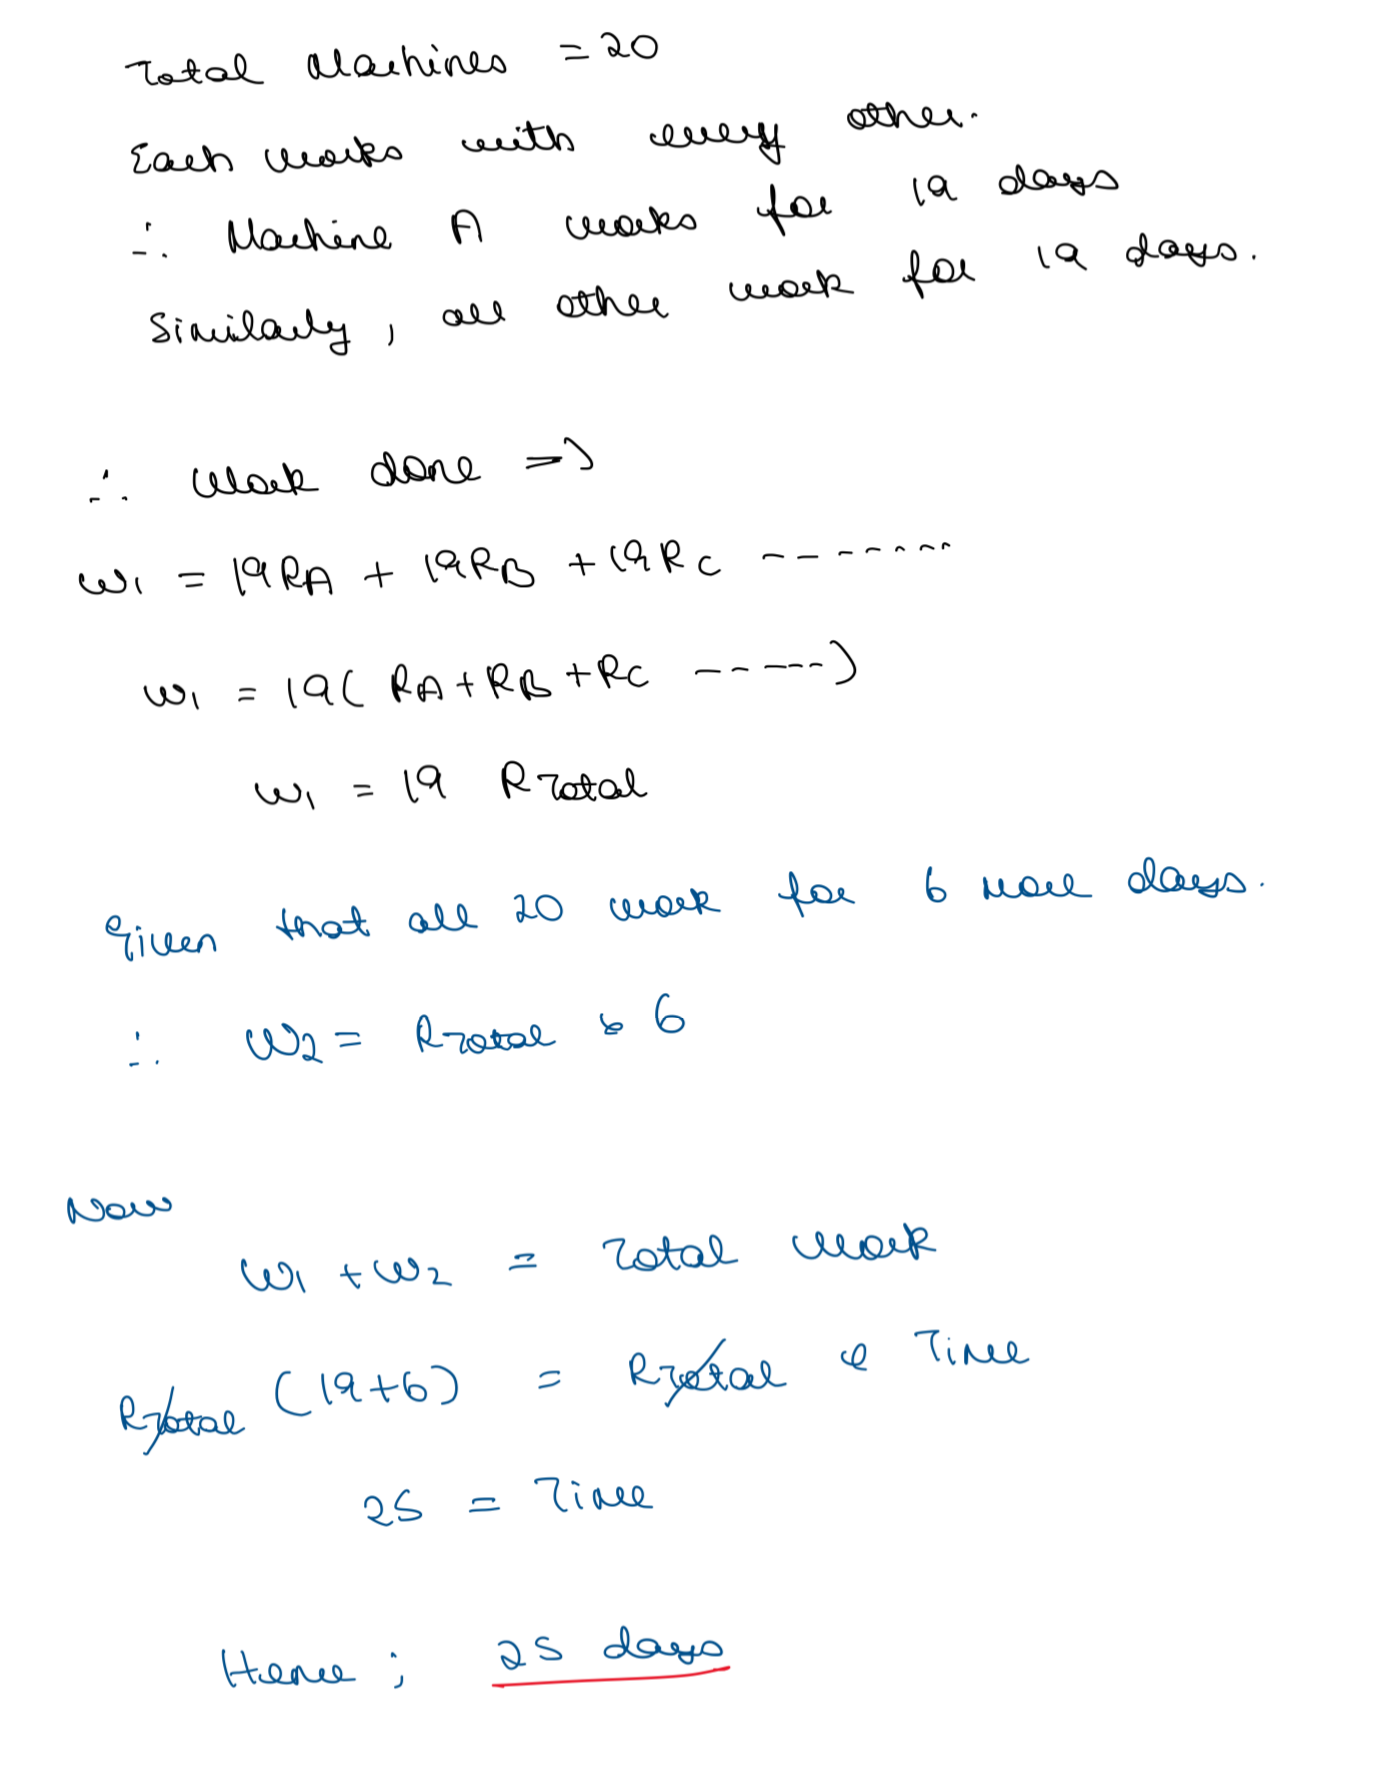 Total Machines = 20
Each works with every other.
∴ Machine A works for 19 days
Similarly, all other work for 19 days.
∴ Work done =>
W1 = 19RA + 19RB + 19RC --------
W1 = 19( RA + RB + RC -----)
W1 = 19 RTotal
Given that all 20 work for 6 more days.
∴ W2 = RTotal * 6
Now
W1 + W2 = Total Work
RTotal (19+6) = RTotal * Time
25 = Time
Hence ; 25 days